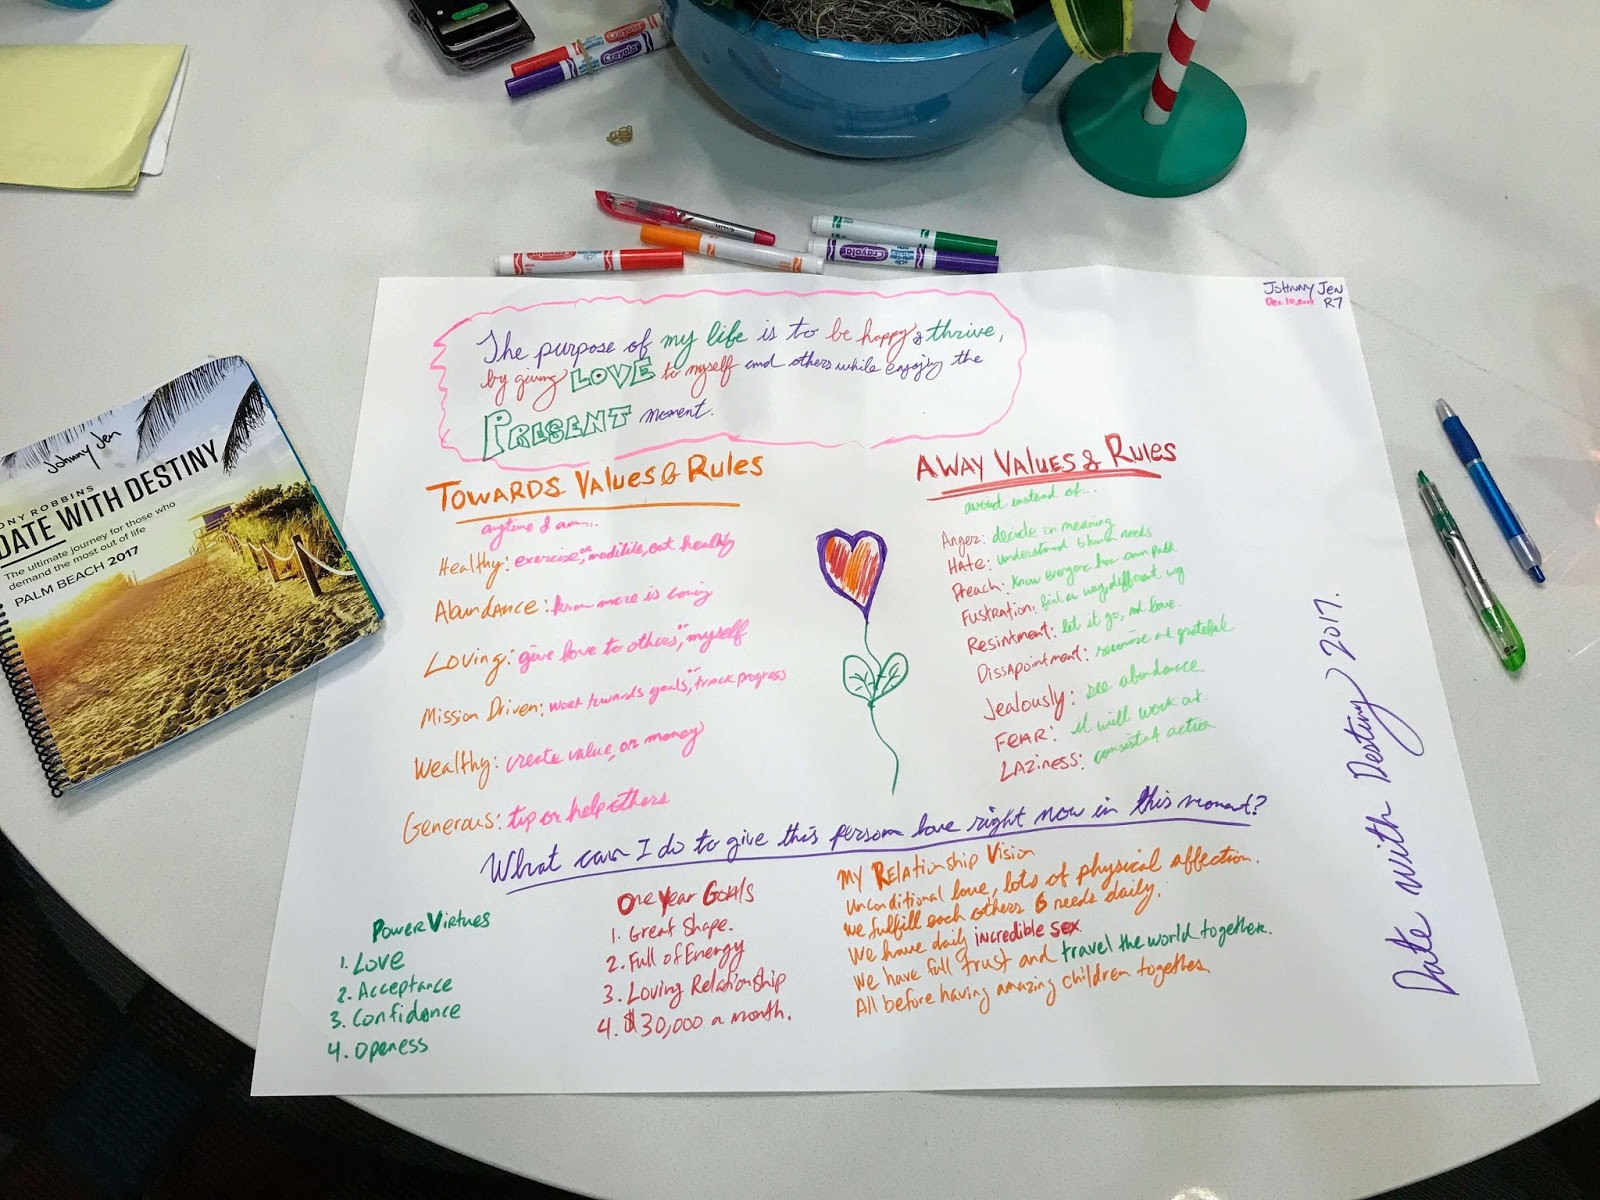 Crayola
Crayola
Crayola
Johnny Jen
Dec 10, 2017 R7
The purpose of my life is to be happy & thrive,
by giving LOVE to myself and others while enjoying the
PRESENT moment.
Johnny Jen
TONY ROBBINS
DATE WITH DESTINY
The ultimate journey for those who
demand the most out of life
PALM BEACH 2017
TOWARDS VALUES & RULES
anytime I am...
Healthy: exercise, or meditate, eat healthy
Abundance: know more is coming
Loving: give love to others, or myself
Mission Driven: work towards goals, or track progress
Wealthy: create value, or money
Generous: tip or help others
AWAY VALUES & RULES
avoid instead of...
Anger: decide on meaning
Hate: understand 6 human needs
Preach: know everyone has own path
Fustration: find a way different way
Resintment: let it go, and love.
Dissapointment: and grateful
Jealously: see abundance
FEAR: it will work out.
LAZINESS: action
What can I do to give this person love right now in this moment?
Power Virtues
1. Love
2. Acceptance
3. Confidence
4. Openess
One Year Goals
1. Great Shape.
2. Full of Energy
3. Loving Relationship
4. $30,000 a month.
My Relationship Vision
Unconditional love, lots of physical affection.
We fulfill each others 6 needs daily.
We have daily incredible sex
We have full trust and travel the world together.
All before having amazing children together
Date with Destiny 2017.